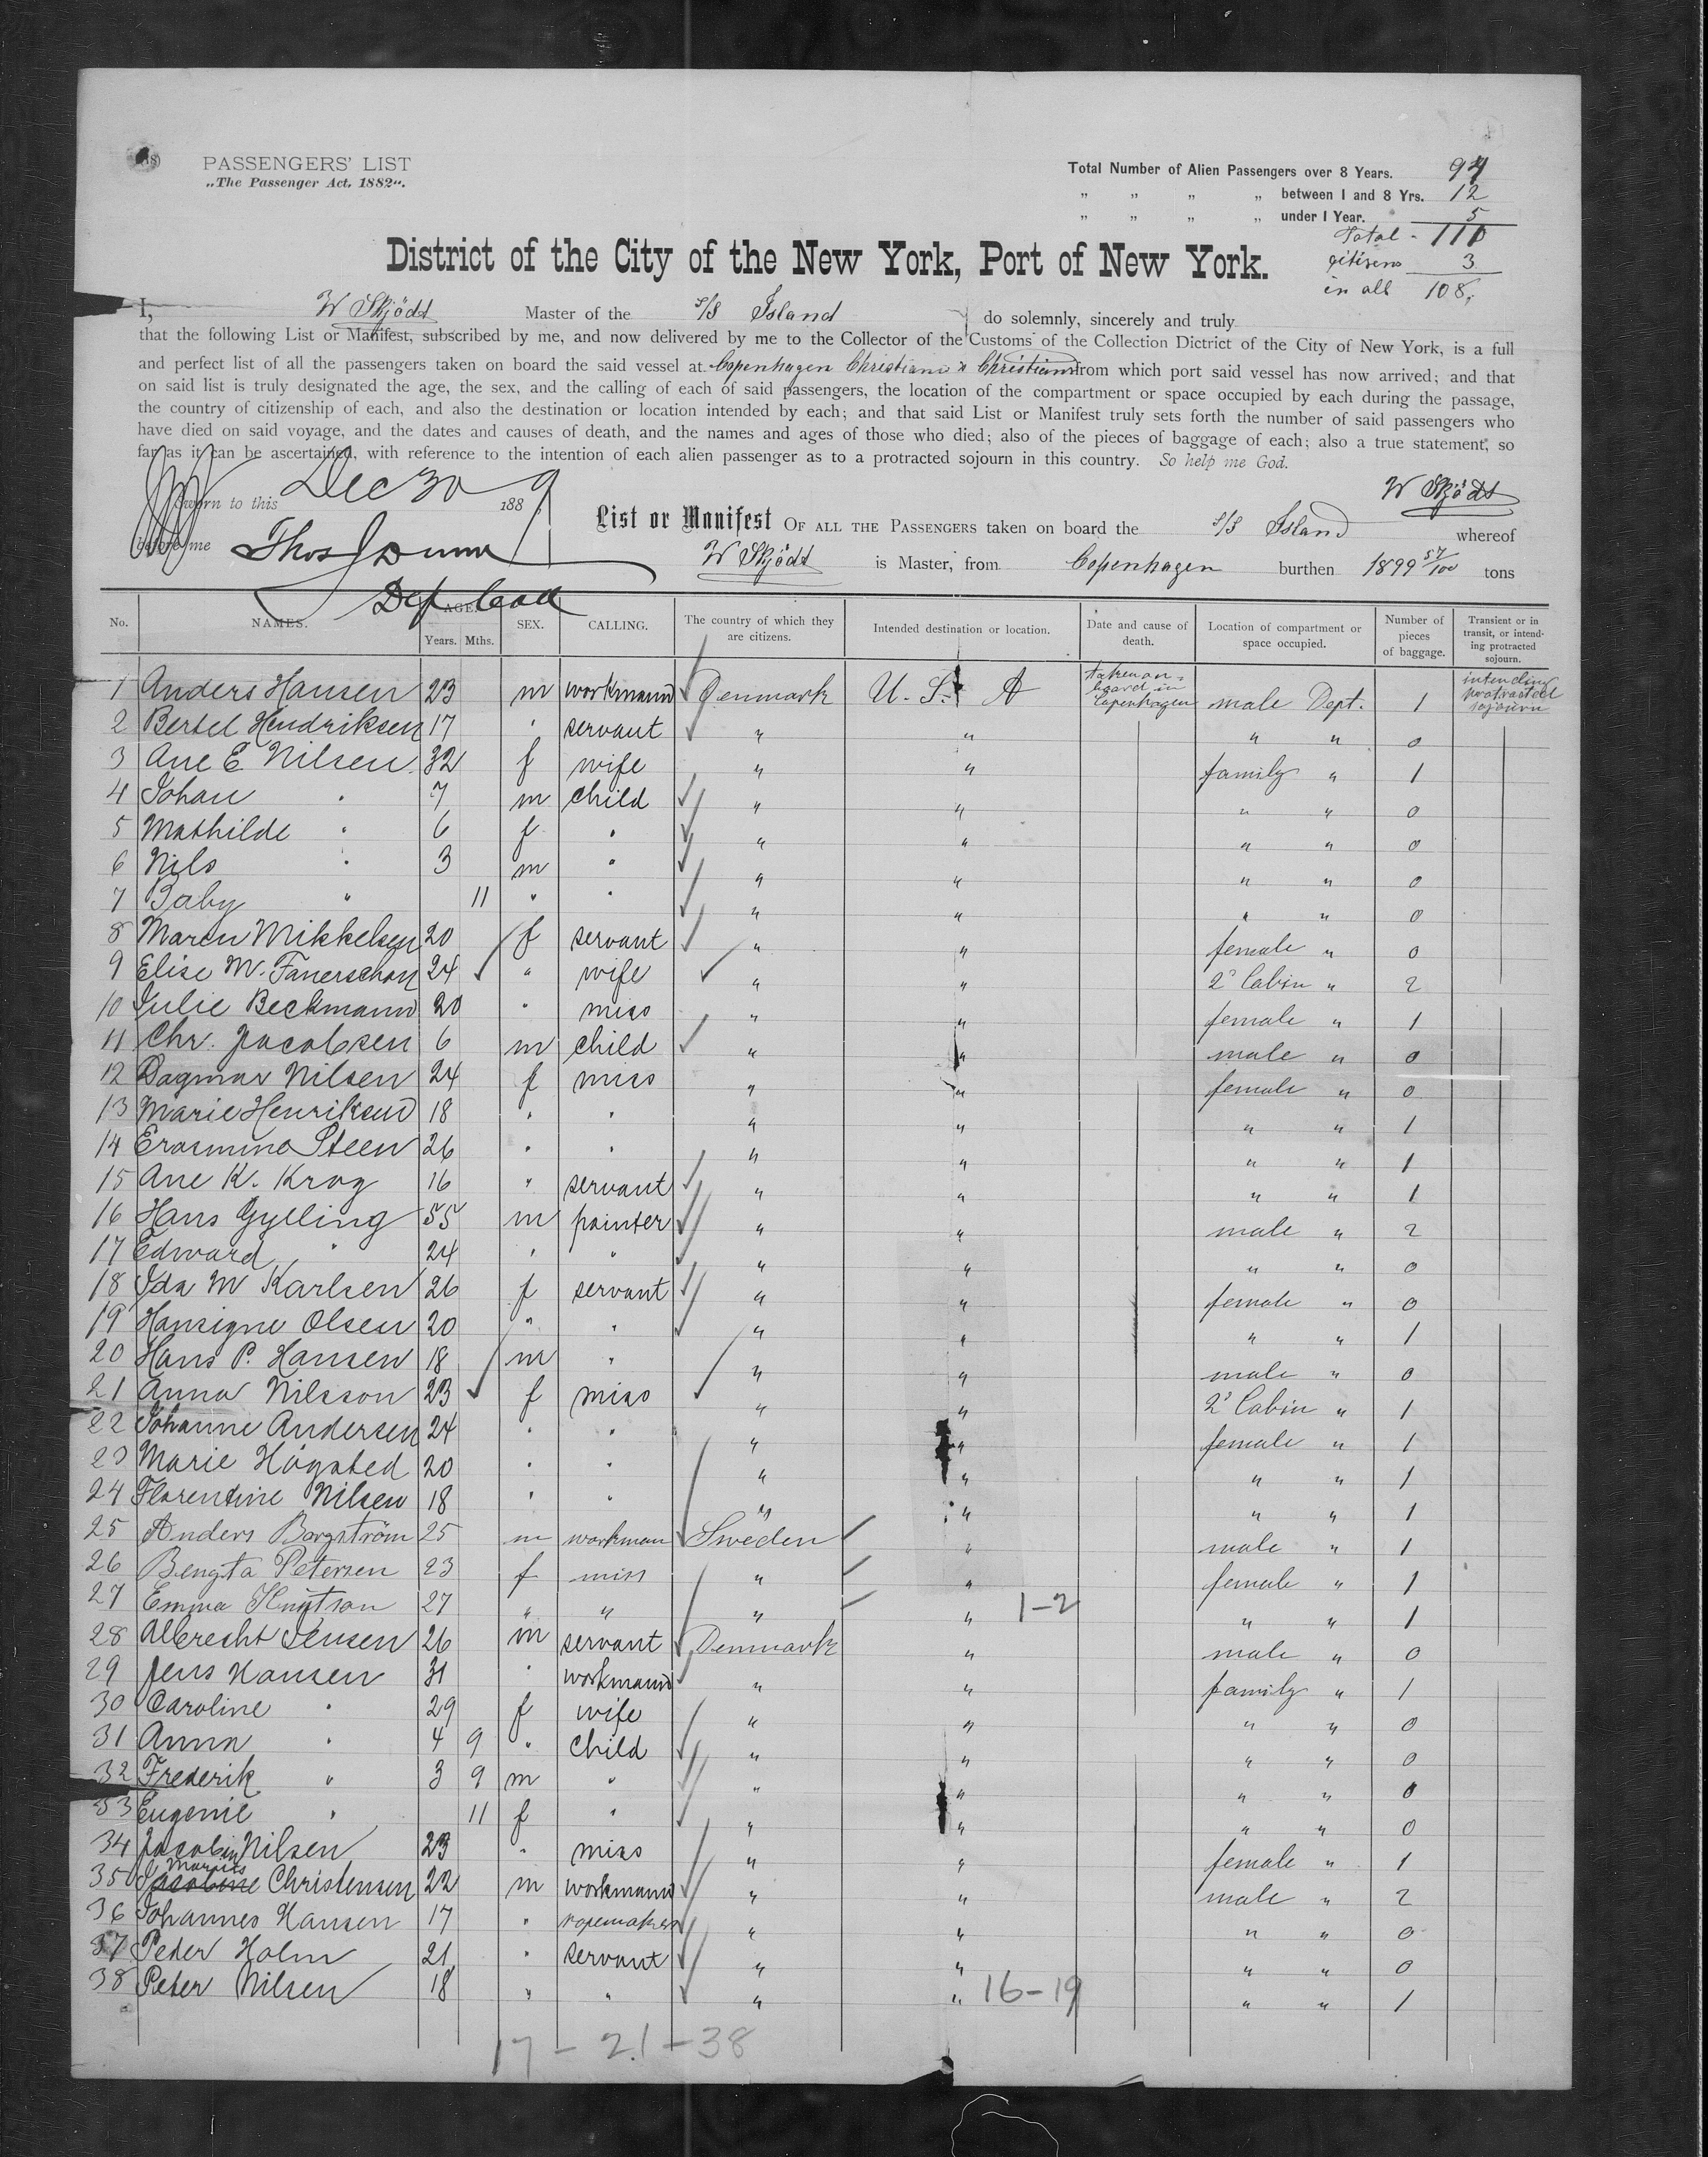 PASSENGERS' LIST
„The Passenger Act, 1882“.
Total Number of Alien Passengers over 8 Years. 94
„ „ „ „ between 1 and 8 Yrs. 12
„ „ „ „ under 1 Year. 5
Total - 111
citizens 3
in all 108,
District of the City of the New York, Port of New York.
I, W Skjödt Master of the s/s Island do solemnly, sincerely and truly
that the following List or Manifest, subscribed by me, and now delivered by me to the Collector of the Customs of the Collection Dictrict of the City of New York, is a full
and perfect list of all the passengers taken on board the said vessel at Copenhagen Christiania & Christiansand from which port said vessel has now arrived; and that
on said list is truly designated the age, the sex, and the calling of each of said passengers, the location of the compartment or space occupied by each during the passage,
the country of citizenship of each, and also the destination or location intended by each; and that said List or Manifest truly sets forth the number of said passengers who
have died on said voyage, and the dates and causes of death, and the names and ages of those who died; also of the pieces of baggage of each; also a true statement, so
far as it can be ascertained, with reference to the intention of each alien passenger as to a protracted sojourn in this country. So help me God.
Sworn to this Dec 30 1889
W Skjödt
before me Thos J Dunn
Dep Coll
List or Manifest OF ALL THE PASSENGERS taken on board the s/s Island whereof
W Skjödt is Master, from Copenhagen burthen 1899 57/100 tons
No. NAMES. AGE. Years. Mths. SEX. CALLING. The country of which they are citizens. Intended destination or location. Date and cause of death. Location of compartment or space occupied. Number of pieces of baggage. Transient or in transit, or intending protracted sojourn.
1 Anders Hansen 23 m workmann Denmark U. S. A taken on board in Copenhagen male Dept. 1 intending protracted sojourn
2 Bertel Hendriksen 17 " servant " " " " 0
3 Ane E. Nilsen 32 f wife " " family " 1
4 Johan " 7 m child " " " " 0
5 Mathilde " 6 f " " " " " 0
6 Nils " 3 m " " " " " 0
7 Baby " 11 " " " " " " 0
8 Maren Mikkelsen 20 f servant " " female " 0
9 Elise M. Fanerschou 24 " wife " " 2' Cabin " 2
10 Julie Beckmann 20 " miss " " female " 1
11 Chr. Jacobsen 6 m child " " male " 0
12 Dagmar Nilsen 24 f miss " " female " 0
13 Marie Henriksen 18 " " " " " " 1
14 Erasmine Steen 26 " " " " " " 1
15 Ane K. Krog 16 " servant " " " " 1
16 Hans Gylling 55 m painter " " male " 2
17 Edward " 24 " " " " " " 0
18 Ida M Karlsen 26 f servant " " female " 0
19 Hansigne Olsen 20 " " " " " " 1
20 Hans P. Hansen 18 m " " " male " 0
21 Anna Nilsson 23 f miss " " 2' Cabin " 1
22 Johanne Andersen 24 " " " " female " 1
23 Marie Högsted 20 " " " " " " 1
24 Florentine Nilsen 18 " " " " " " 1
25 Anders Borgström 25 m workman Sweden " male " 1
26 Bengta Petersen 23 f miss " " female " 1
27 Emma Knutson 27 " " " " 1-2 " " 1
28 Albrecht Jensen 26 m servant Denmark " male " 0
29 Jens Hansen 31 " workmann " " family " 1
30 Caroline " 29 f wife " " " " 0
31 Anna " 4 9 " child " " " " 0
32 Frederik " 3 9 m " " " " " 0
33 Eugenie " 11 f " " " " " 0
34 Jacobin Nilsen 23 " miss " " female " 1
35 J. Marius Christensen 22 m workmann " " male " 2
36 Johannes Hansen 17 " ropemaker " " " " 0
37 Peder Holm 21 " servant " " " " 0
38 Peter Nilsen 18 " " " " 16-19 " " 1
17 - 21 - 38